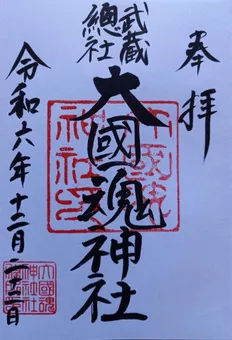 奉拝
武蔵
總社
大國魂神社
令和六年十二月二十二日
大國魂
神社印
大國魂
神社社